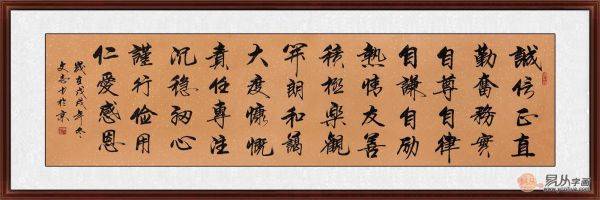 誠信正直
勤奮務實
自尊自律
自謙自励
熱情友善
積極樂觀
開朗和藹
大度慷慨
責任專注
沉稳心
謹行俭用
仁愛感恩
歲在戊戌年冬
文志书於京
易从字画